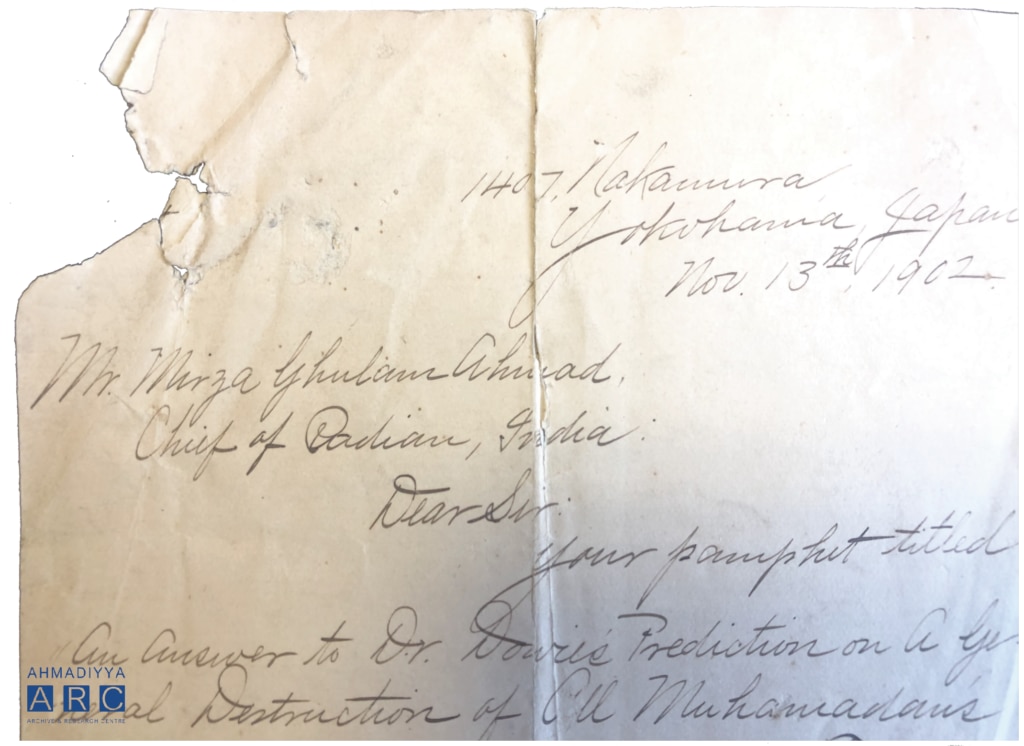 1407, Nakamura
Yokohama, Japan
Nov. 13th, 1902.
Mr. Mirza Ghulam Ahmad,
Chief of Qadian, India:
Dear Sir:
Your pamphet titled
"An Answer to Dr. Dowie's Prediction on A Ge-
neral Destruction of All Muhamadans
AHMADIYYA
ARC
ARCHIVE & RESEARCH CENTRE